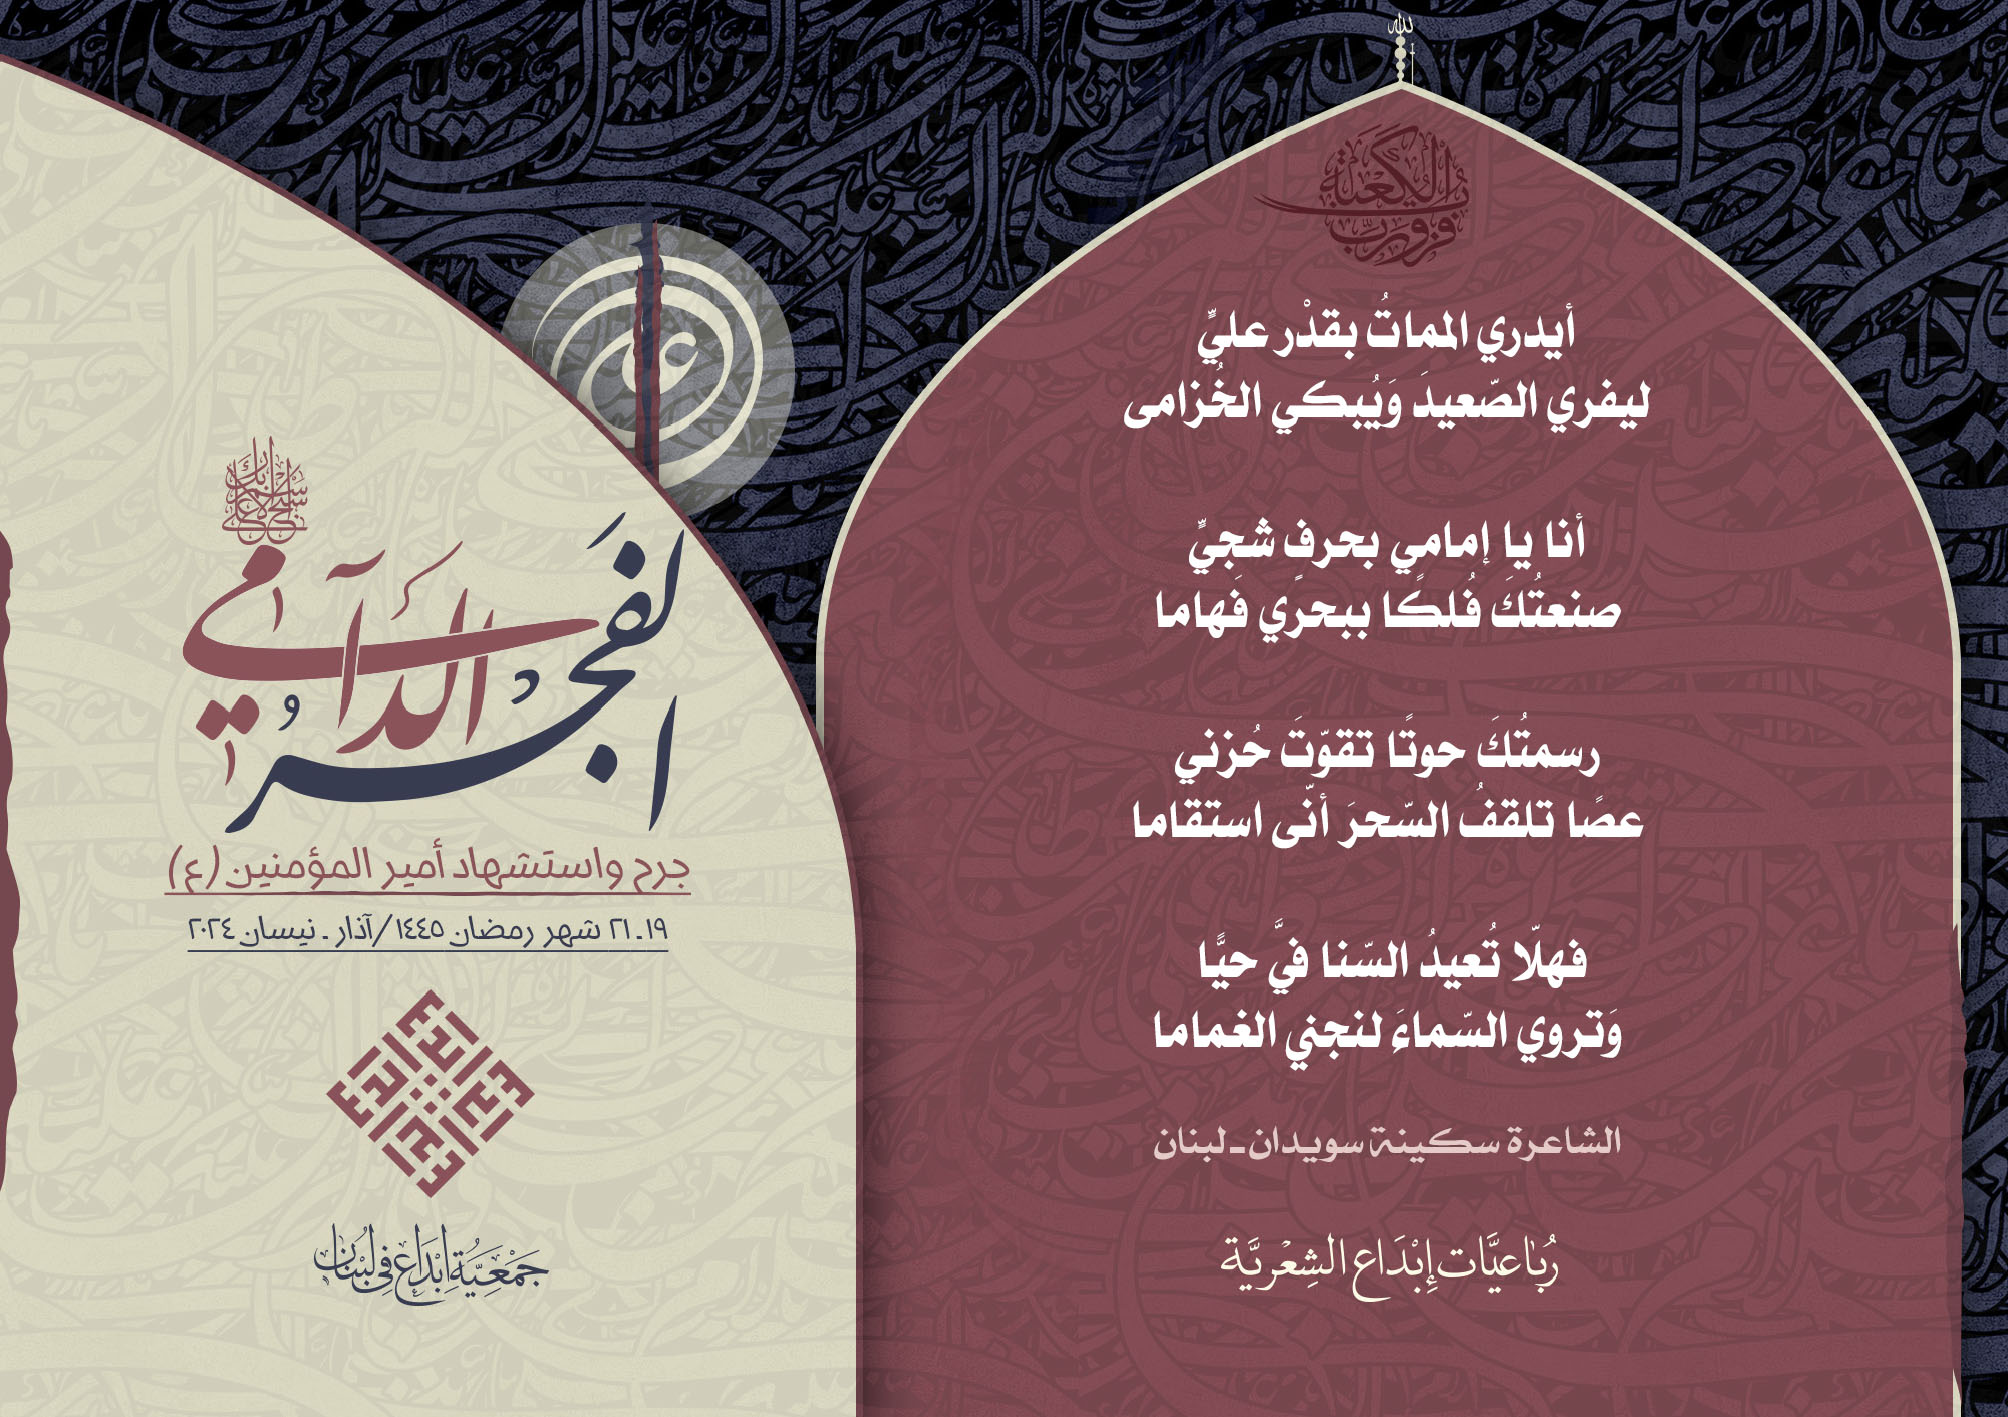 الله
فزت ورب الكعبة
أيدري المماتُ بقدْر عليٍّ
ليفري الصّعيدَ وَيُبكي الخُزامى
أنا يا إمامي بحرفٍ شجيٍّ
صنعتُكَ فُلكًا ببحري فَهاما
رسمتُكَ حوتًا تقوّتَ حُزني
عصًا تلقفُ السّحرَ أنّى استقاما
فهلّا تُعيدُ السّنا فيَّ حيًّا
وَتروي السّماءَ لنجني الغماما
الشاعرة سكينة سويدان ـ لبنان
رُبَاعيَّات إِبْدَاع الشِعْريَّة
علي
سبح اسم ربك الأعلى
الفَجرُ الدَّامي
جرح واستشهاد أمير المؤمنين (ع)
١٩ـ٢١ شهر رمضان ١٤٤٥/آذار ـ نيسان ٢٠٢٤
جَمْعِيَّةُ إِبْدَاع فِي لُبْنَان